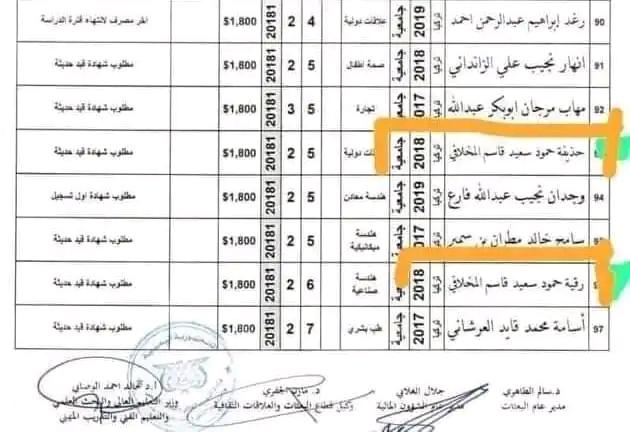 90 رغد ابراهيم عبدالرحمن احمد تركيا 2019 جامعية علاقات دولية 4 2 20181 $1,800 اخر مصرف لانتهاء فترة الدراسة
91 انهار نجيب علي الزانداني تركيا 2018 جامعية صحة اطفال 5 2 20181 $1,800 مطلوب شهادة قيد حديثة
92 مهاب مرجان ابوبكر عبدالله تركيا 2017 جامعية تجارة 5 3 20181 $1,800 مطلوب شهادة قيد حديثة
حذيفة حمود سعيد قاسم المخلافي تركيا 2018 جامعية دولية 5 2 20181 $1,800 مطلوب شهادة قيد حديثة
94 وجدان نجيب عبدالله فارع تركيا 2019 جامعية هندسة معادن 5 2 20181 $1,800 مطلوب شهادة اول تسجيل
سامح خالد مطران بن سمير تركيا 2017 جامعية هندسة ميكانيكية 5 2 20181 $1,800 مطلوب شهادة قيد حديثة
رقية حمود سعيد قاسم المخلافي تركيا 2018 هندسة صناعية 6 2 20181 $1,800 مطلوب شهادة قيد حديثة
97 أسامة محمد قايد العرشاني تركيا 2017 جامعية طب بشري 7 2 20181 $1,800 مطلوب شهادة قيد حديثة
د.سالم الظاهري جلال الغلابي د. مازن الجفري أ.د خالد احمد الوصابي
مدير عام البعثات مدير عام الشؤون المالية وكيل قطاع البعثات والعلاقات الثقافية وزير التعليم العالي والبحث العلمي
والتعليم الفني والتدريب المهني